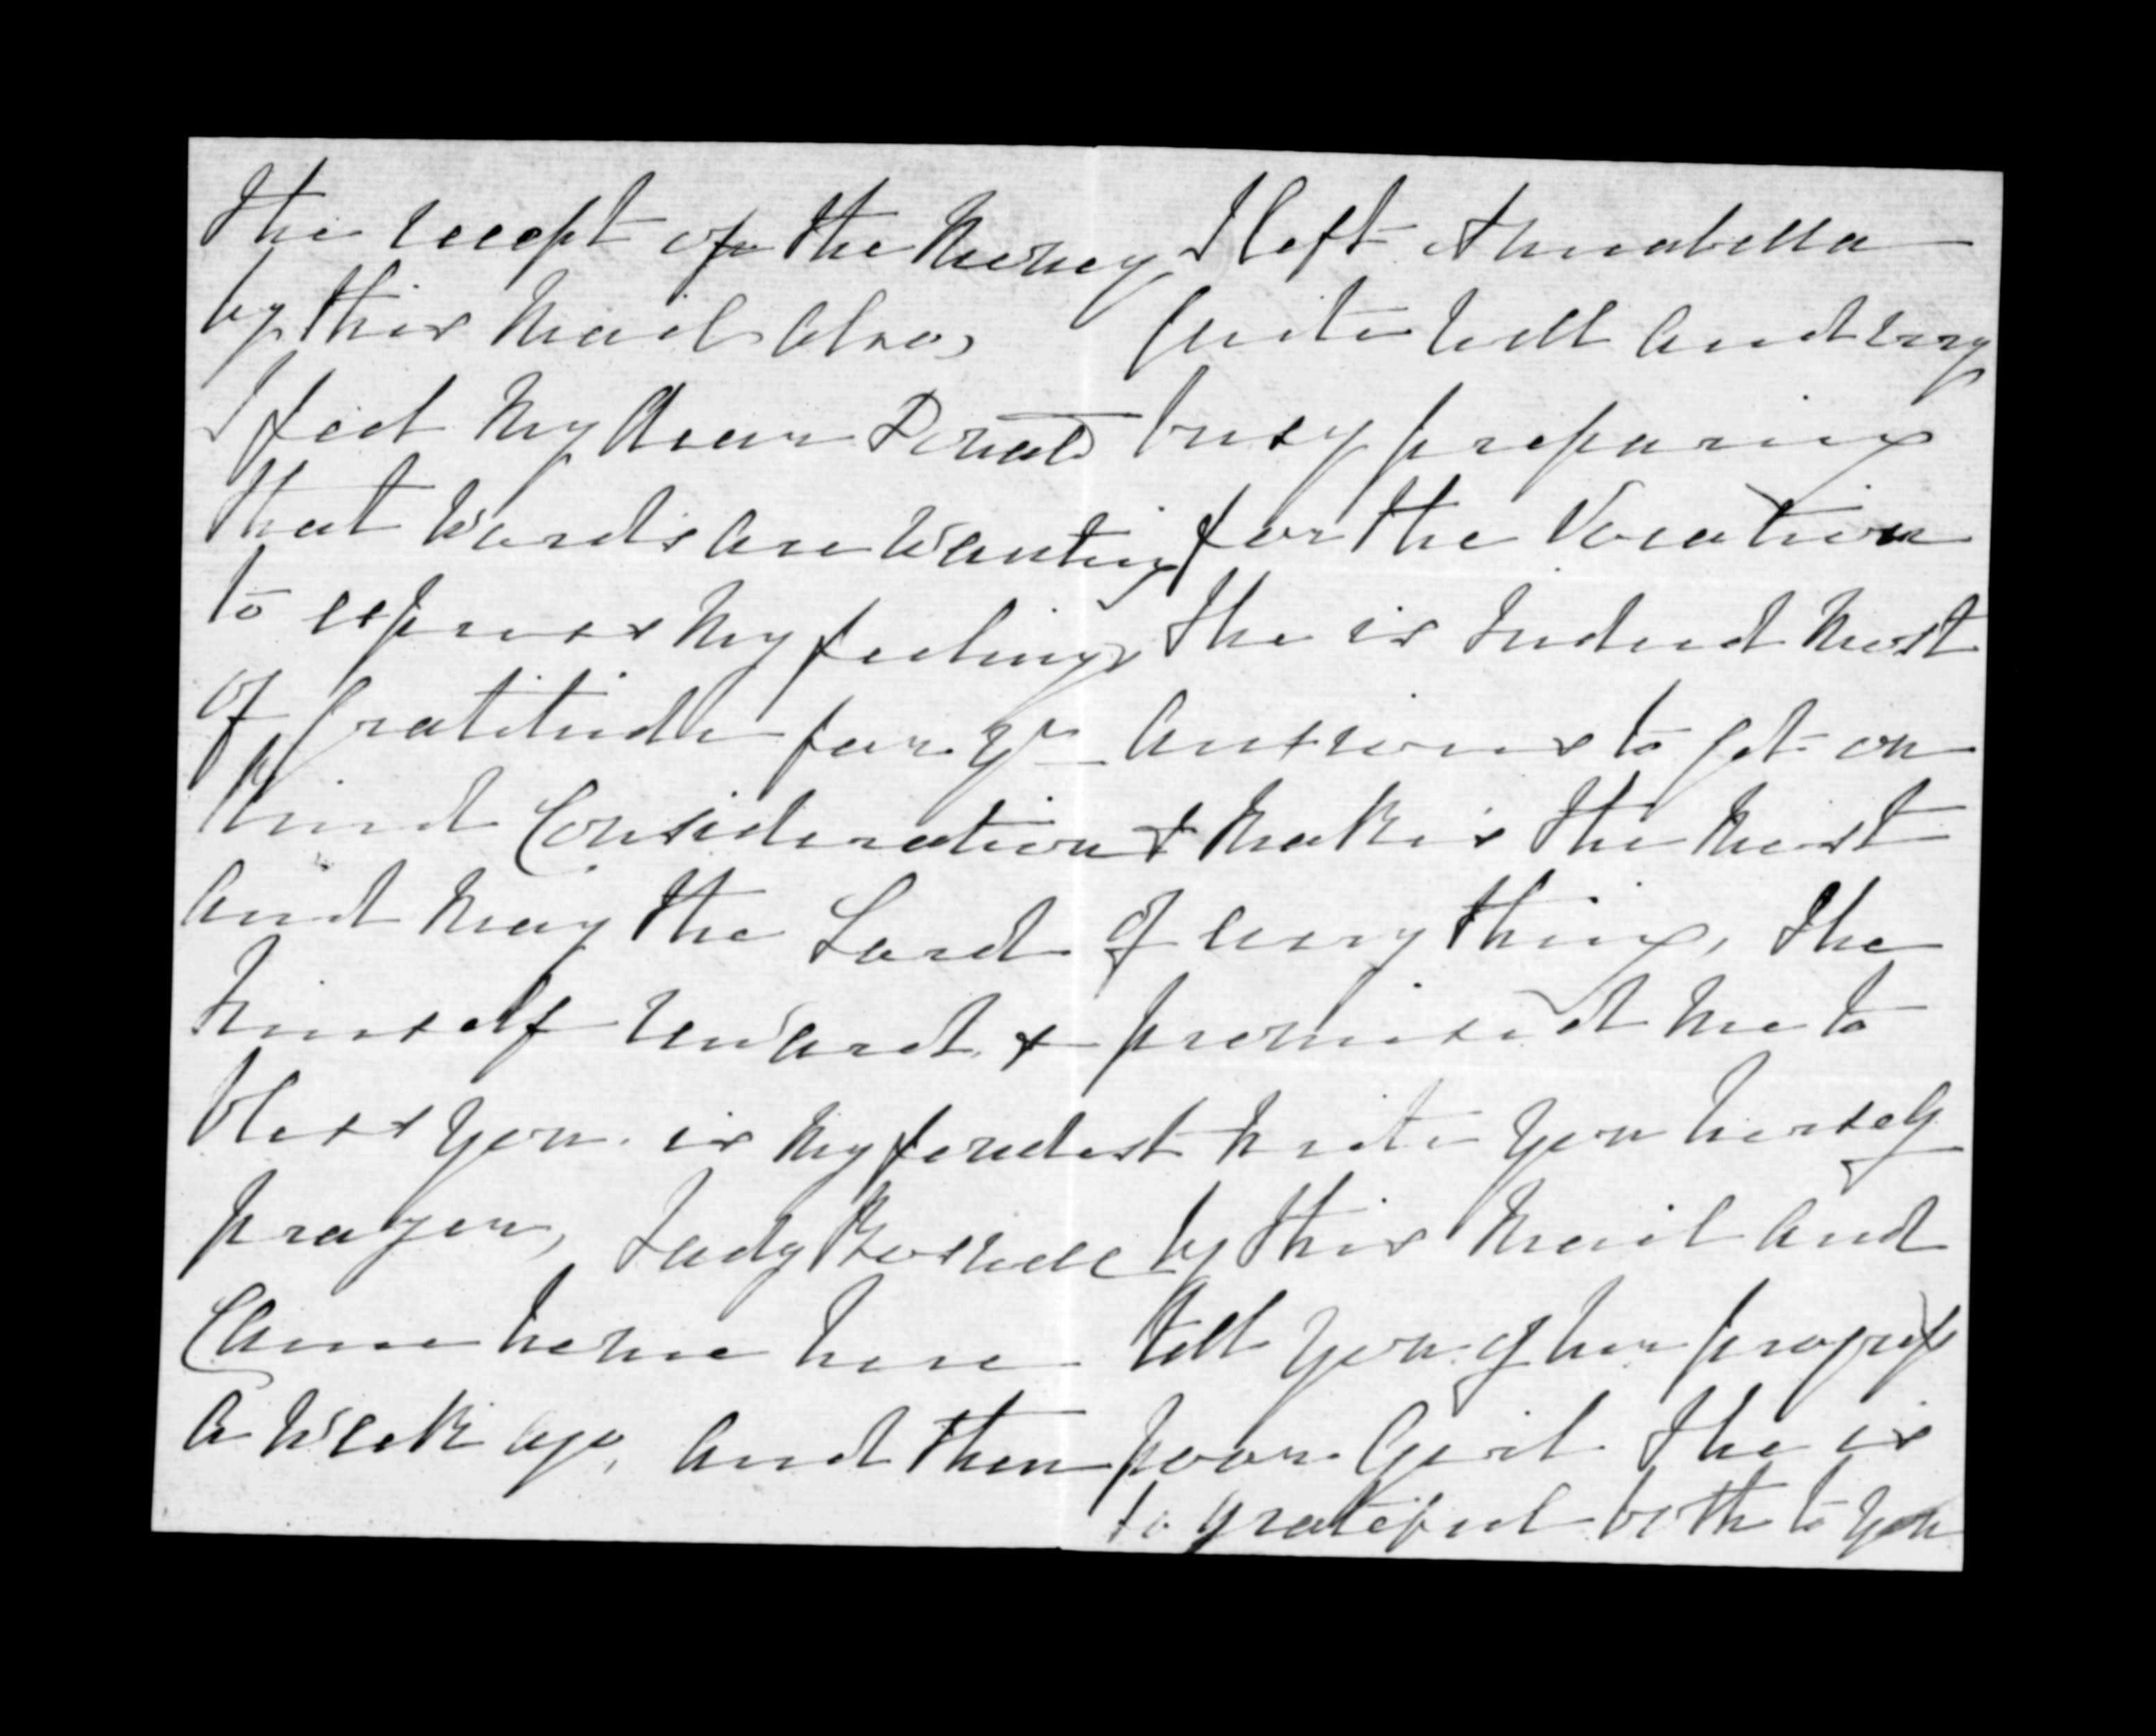 The receept of the Money
by this Mail also,
I feel My dear Donald
that words are wanting
to express My feelings
of gratitude for yr
kind Consideration
and may the Lord
himself reward &
bless you. is My fondest
prayer, Lady
Came home here
a week ago, and then
I left Annabella
quite well and very
busy preparing
for the Vacation
She is indeed most
anxious to get on
& makes the most
of every thing, She
promised me to
write you herself
by this Mail and
tell you of her progress
poor Girl She is
so grateful both to you